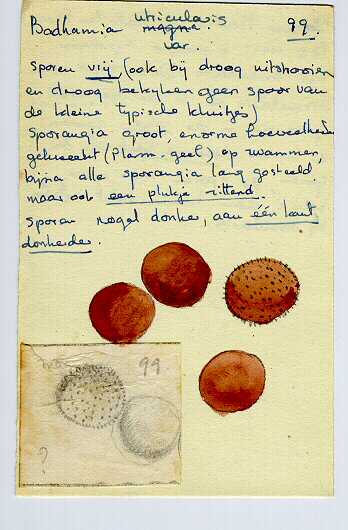 utricularis
Badhamia magna 99.
var.
sporen vrij (ook bij droog uitstrooien
en droog bekijken geen spoor van
de kleine typische kluitjes)
sporangia groot, enorme hoeveelheden
gekweekt (Plasm. geel) op zwammen,
bijna alle sporangia lang gesteeld
maar ook een plukje zittend.
sporen nogal donker, aan één kant
donkerder.
99
?